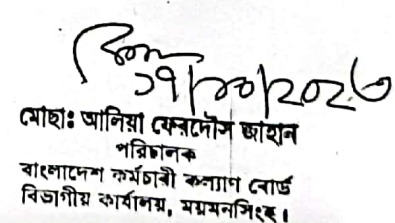 ১৭/১০/২০২৩
মোছাঃ আনিয়া ফেরদৌস জাহান
পরিচালক
বাংলাদেশ কর্মচারী কল্যাণ বোর্ড
বিভাগীয় কার্যালয়, ময়মনসিংহ।